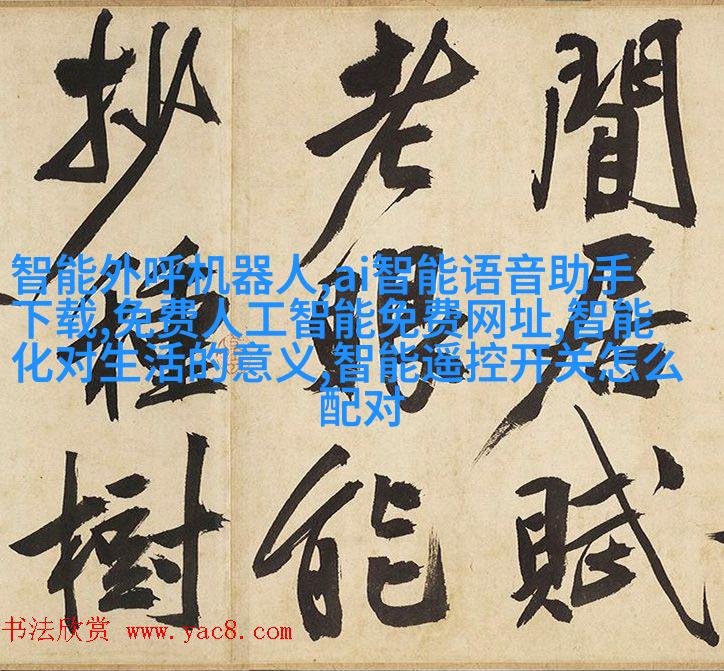 閒居賦
老眼能
抄種樹
智能外呼机器人,ai智能语音助手
下载,免费人工智能免费网址,智能
化对生活的意义,智能遥控开关怎么
配对
书法欣赏 www.yac8.com